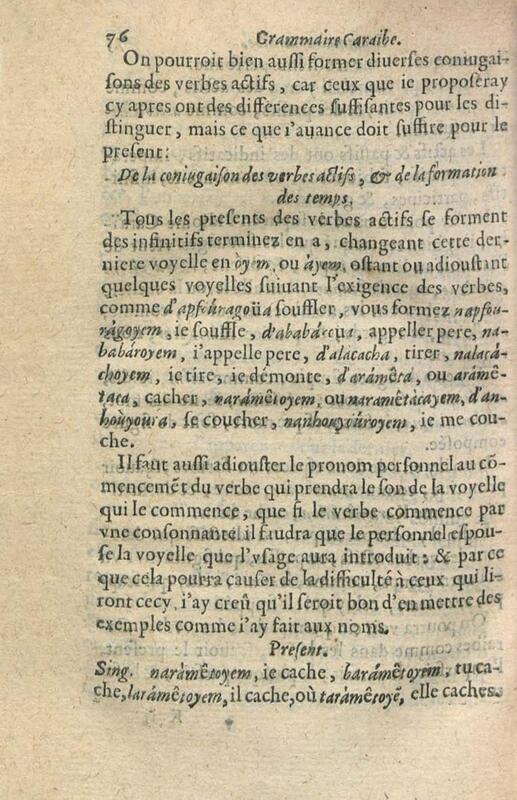 76 Grammaire Caraibe.
On pourroit bien aussi former diuerses coniugai-
sons des verbes actifs, car ceux que ie proposeray
cy apres ont des differences suffisantes pour les di-
stinguer, mais ce que i'auance doit suffire pour le
present:
De la coniugaison des verbes actifs, & de la formation
des temps.
Tous les presents des verbes actifs se forment
des infinitifs terminez en a, changeant cette der-
niere voyelle en òyem, ou àyem, ostant ou adioustant
quelques voyelles suiuant l'exigence des verbes,
comme d'apfouragoüa souffler, vous formez napfou-
rágoyem, ie souffle, appeller pere, na-
babároyem, i'appelle pere, d'alacacha, tirer, nalacá-
choyem, ie tire, ie démonte, d'arámêta, ou arámê-
taca, cacher, narámêtoyem, ou naramêtàcayem, d'an-
hoùyoura, se coucher, ie me cou-
che.
Il faut aussi adiouster le pronom personnel au cō-
mencemēt du verbe qui prendra le son de la voyelle
qui le commence, que si le verbe commence par
vne consonnante il faudra que le personnel espou-
se la voyelle que l'vsage aura introduit: & par ce
que cela pourra causer de la difficulté à ceux qui li-
ront cecy, i'ay creû qu'il seroit bon d'en mettre des
exemples comme i'ay fait aux noms.
Present.
Sing. narámêtoyem, ie cache, barámêtoyem, tu ca-
che, larámêtoyem, il cache, où tarámêtoyē, elle caches.